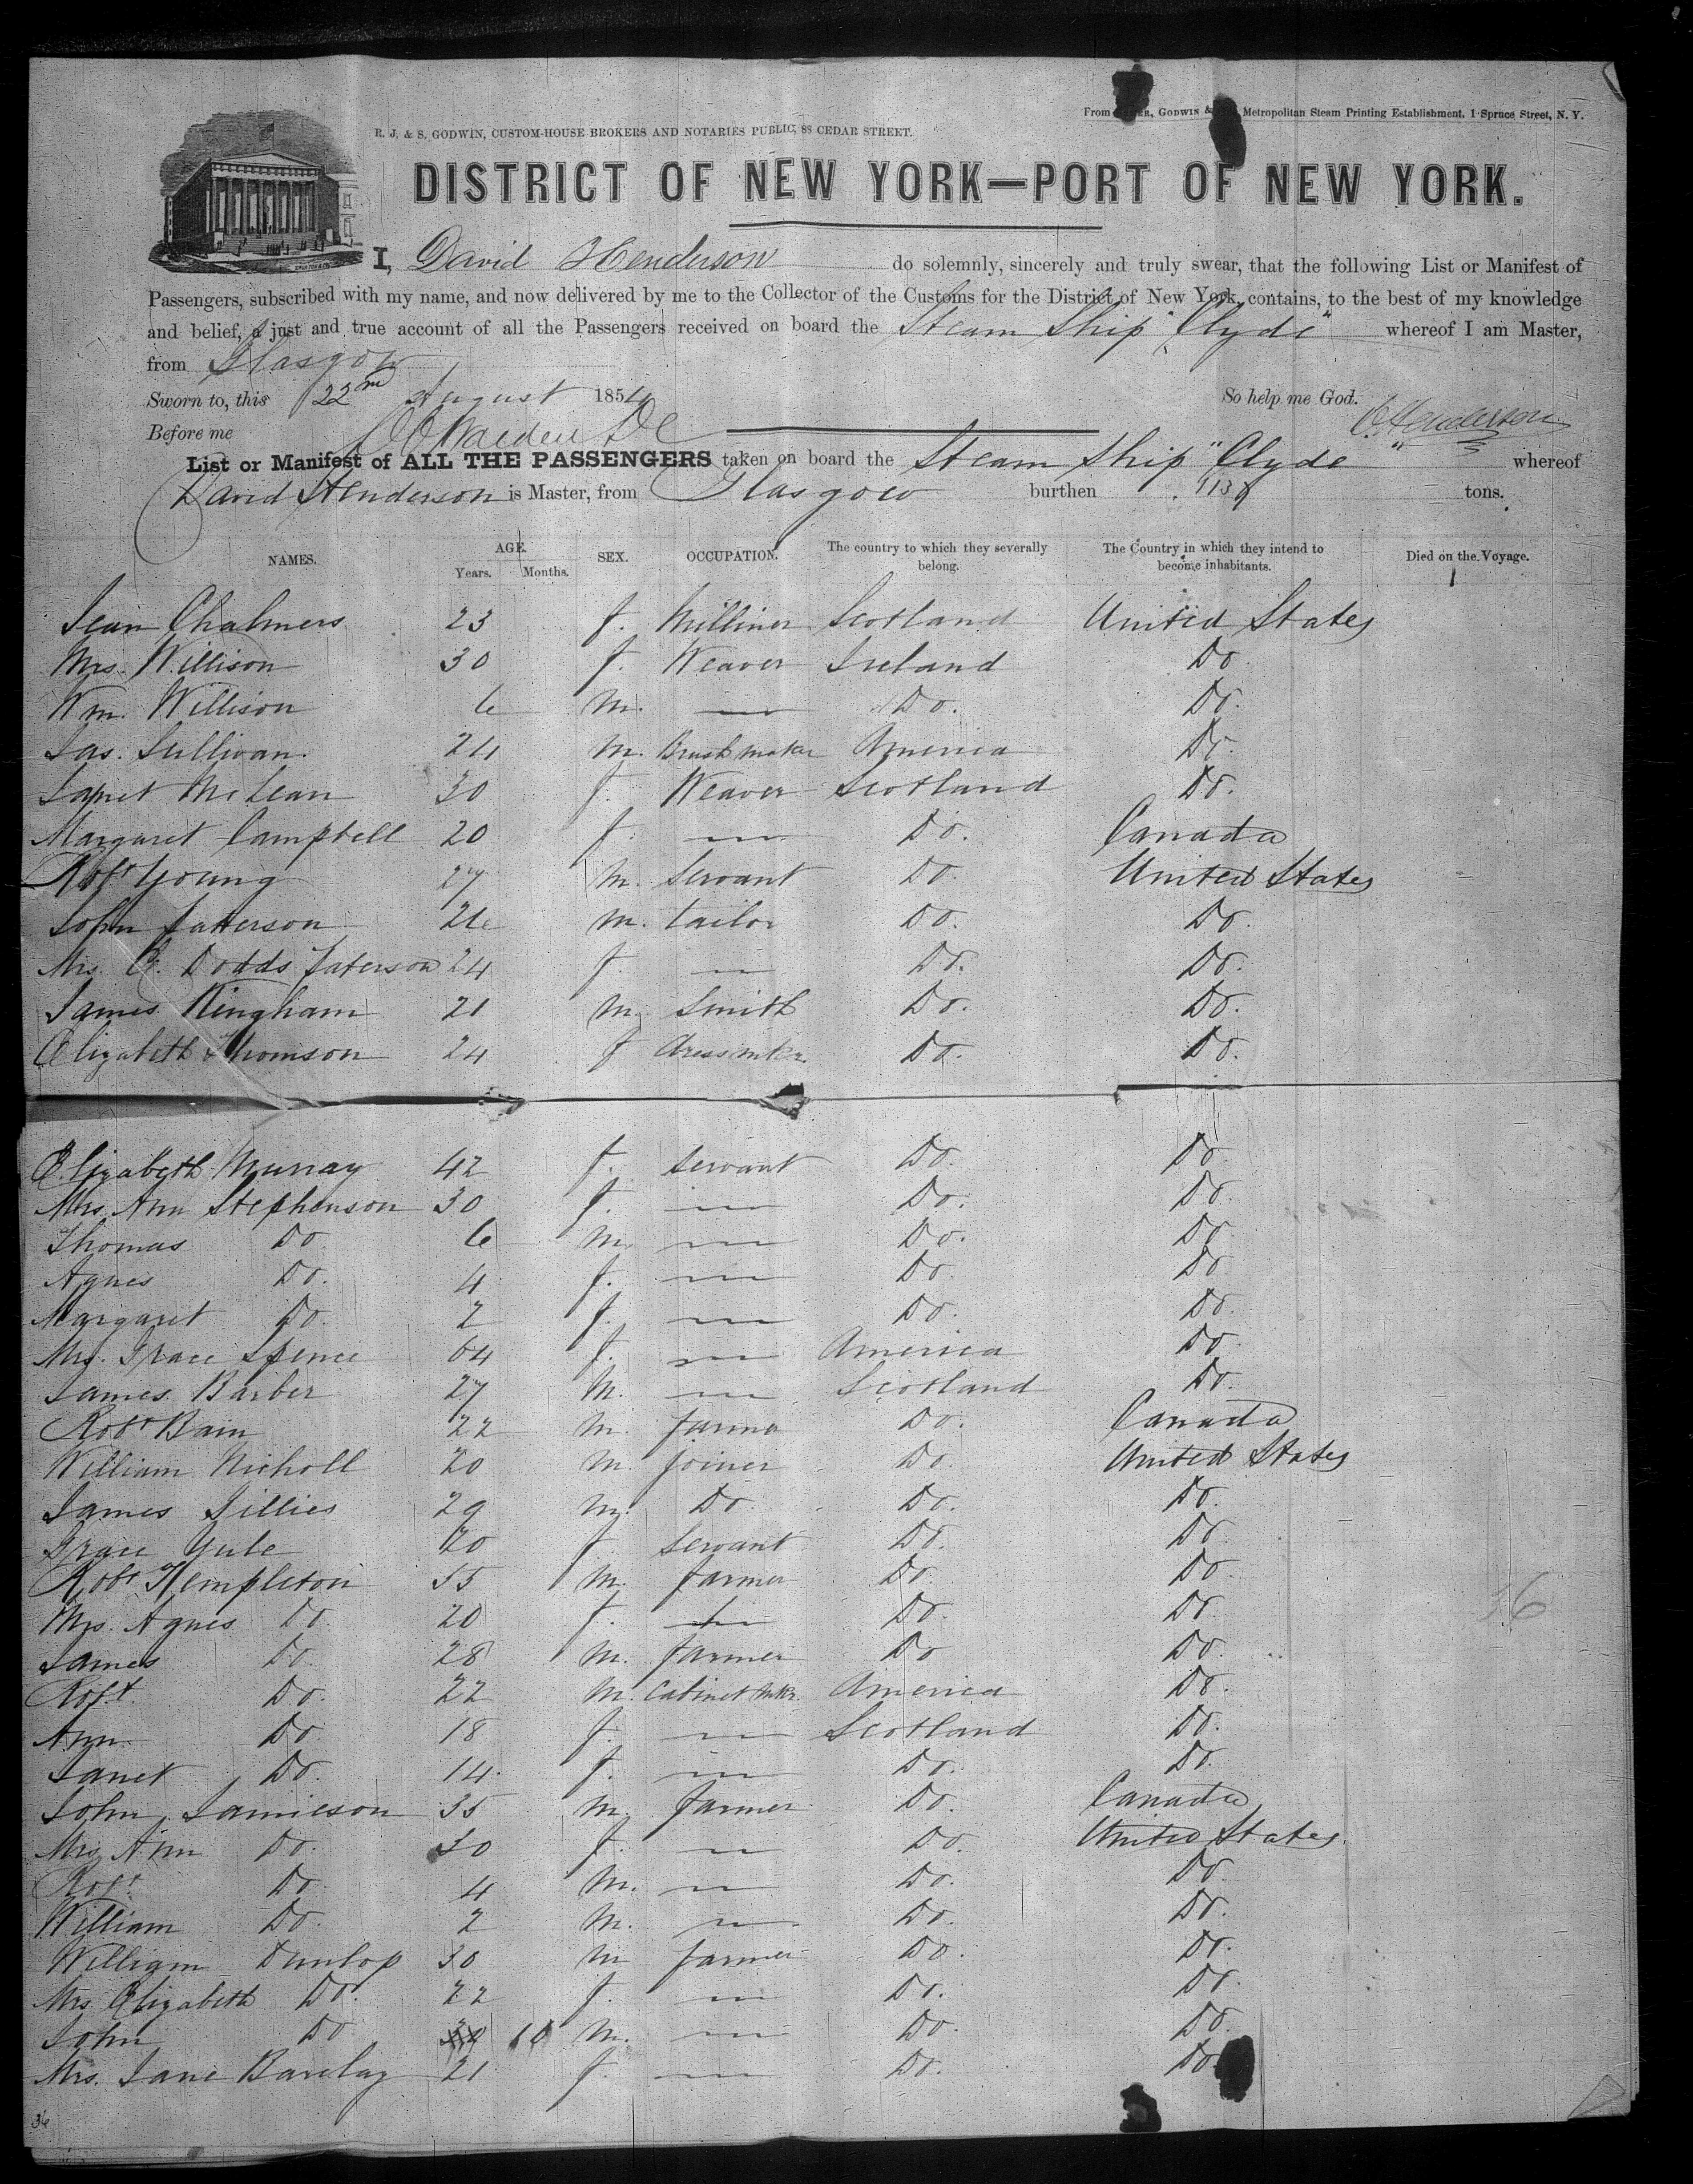 From Godwin & Metropolitan Steam Printing Establishment, 1 Spruce Street, N. Y.
R. J. & S. GODWIN, CUSTOM-HOUSE BROKERS AND NOTARIES PUBLIC, 88 CEDAR STREET.
DISTRICT OF NEW YORK—PORT OF NEW YORK.
I, David Henderson do solemnly, sincerely and truly swear, that the following List or Manifest of
Passengers, subscribed with my name, and now delivered by me to the Collector of the Customs for the District of New York, contains, to the best of my knowledge
and belief, a just and true account of all the Passengers received on board the Steam Ship "Clyde" whereof I am Master,
from Glasgow
Sworn to, this 22nd August 1854 So help me God.
Before me Henderson
List or Manifest of ALL THE PASSENGERS taken on board the Steam Ship "Clyde" whereof
David Henderson is Master, from Glasgow burthen tons.
NAMES. AGE. Years. Months. SEX. OCCUPATION. The country to which they severally belong. The Country in which they intend to become inhabitants. Died on the Voyage.
Jean Chalmers 23 f. Milliner Scotland United States
Mrs. Willison 30 f. Weaver Ireland Do.
Wm. Willison 6 m. — Do. Do.
Jas. Sullivan. 24 m. Brush maker America Do.
Janet McLean 30 f. Weaver Scotland Do.
Margaret Campbell 20 f. — Do. Canada
Robt Young 27 m. Servant Do. United States
John Patterson 26 m. tailor Do. Do.
Mrs. Dodds Paterson 24 f. — Do. Do.
James Kingham 21 m. Smith Do. Do.
Elizabeth Thomson 24 f dressmkr. Do. Do.
Elizabeth Murray 42 f. Servant Do. Do.
Mrs. Ann Stephenson 30 f. — Do. Do.
Thomas Do 6 m. — Do. Do.
Agnes Do. 4 f. — Do. Do
Margaret Do. 2 f. — Do. Do.
Mrs. Grace Spence 64 f. — America Do.
James Barber 27 m. — Scotland Do.
Robt Bain 22 m. farmer Do. Canada
William Nicholl 20 m joiner Do. United States
James Gillies 29 m. Do. Do. Do.
Grace Yule 20 f Servant Do. Do.
Robt Templeton 55 m. farmer Do. Do.
Mrs. Agnes Do. 20 f. — Do. Do.
James Do. 28 m. farmer Do Do.
Robt. Do. 22 m. Cabinet mkr. America Do.
Ann Do 18 f. — Scotland Do.
Janet Do. 14 f. — Do. Do.
John Jamieson 35 m. farmer Do. Canada
Mrs Ann Do. 30 f. — Do. United States
Robt. Do. 4 m. — Do. Do.
William Do. 2 m. — Do. Do.
William Dunlop 30 m farmer Do. Do.
Mrs Elizabeth Do. 22 f. — Do. Do.
John Do 10 m. — Do. Do.
Mrs. Jane Barclay 21 f. — Do. Do.
36
36